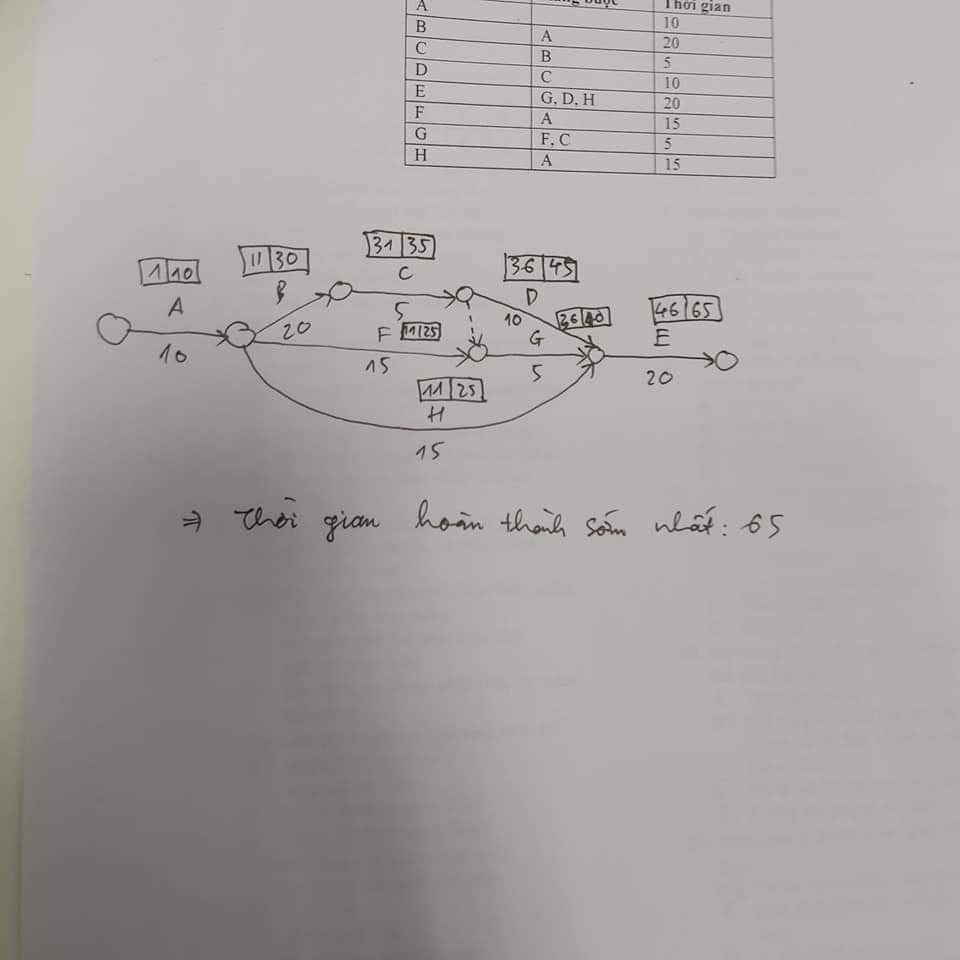 Thời gian
A 10
B A 20
C B 5
D C 10
E G, D, H 20
F A 15
G F, C 5
H A 15
1 10
A
10
11 30
B
20
31 35
C
5
36 45
D
10
F 11 25
15
36 40
G
5
46 65
E
20
11 25
H
15
⇒ Thời gian hoàn thành sớm nhất: 65